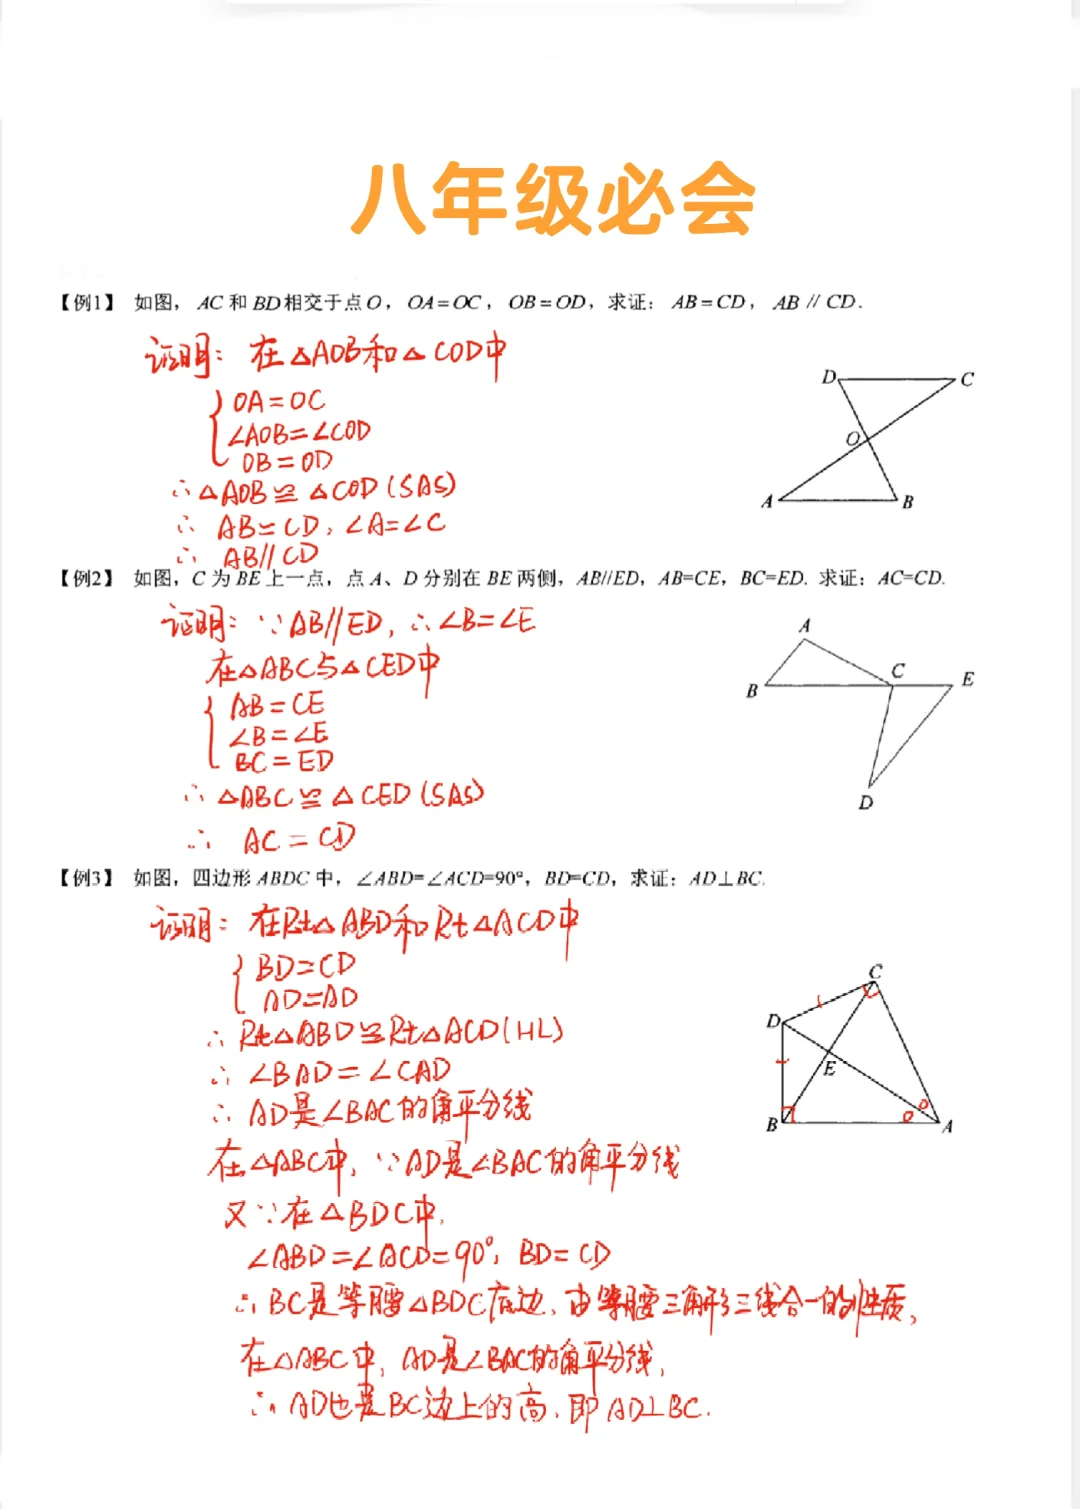 八年级必会
【例1】 如图, AC 和 BD 相交于点 O, OA=OC, OB=OD, 求证: AB=CD, AB // CD.
证明: 在△AOB和△COD中
OA=OC
∠AOB=∠COD
OB=OD
∴△AOB≌△COD(SAS)
∴ AB=CD, ∠A=∠C
∴ AB//CD
D
C
O
A
B
【例2】 如图, C 为 BE 上一点, 点 A、D 分别在 BE 两侧, AB//ED, AB=CE, BC=ED. 求证: AC=CD.
证明: ∵AB//ED, ∴∠B=∠E
在△ABC与△CED中
AB=CE
∠B=∠E
BC=ED
∴△ABC≌△CED(SAS)
∴ AC=CD
A
B
C
E
D
【例3】 如图, 四边形 ABDC 中, ∠ABD=∠ACD=90°, BD=CD, 求证: AD⊥BC.
证明: 在Rt△ABD和Rt△ACD中
BD=CD
AD=AD
∴Rt△ABD≌Rt△ACD(HL)
∴ ∠BAD=∠CAD
∴ AD是∠BAC的角平分线
在△ABC中, ∵AD是∠BAC的角平分线
又∵在△BDC中,
∠ABD=∠ACD=90°, BD=CD
∴BC是等腰△BDC底边, 由等腰三角形三线合一的性质,
在△ABC中, AD是∠BAC的角平分线,
∴AD也是BC边上的高, 即AD⊥BC.
C
D
E
B
A